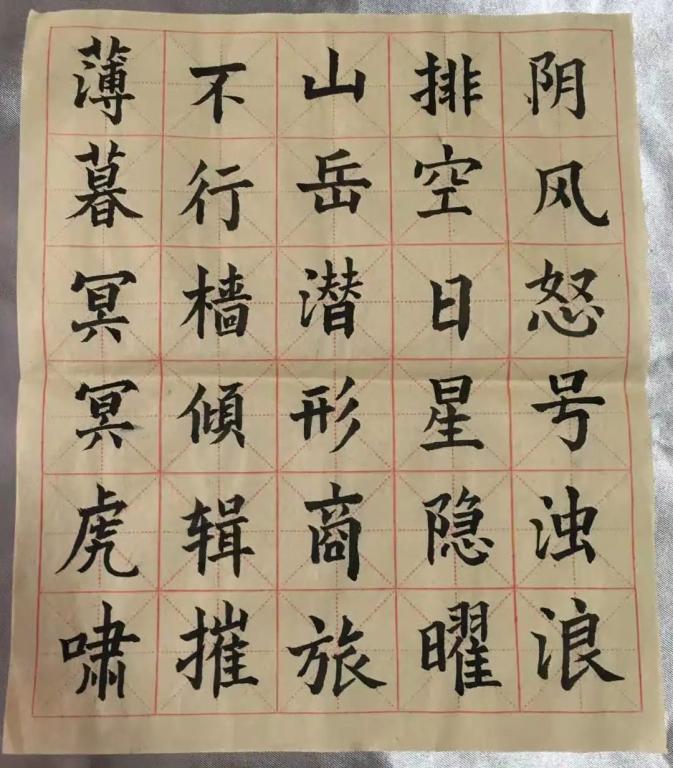 阴风怒号浊浪
排空日星隐曜
山岳潜形商旅
不行樯倾辑摧
薄暮冥冥虎啸